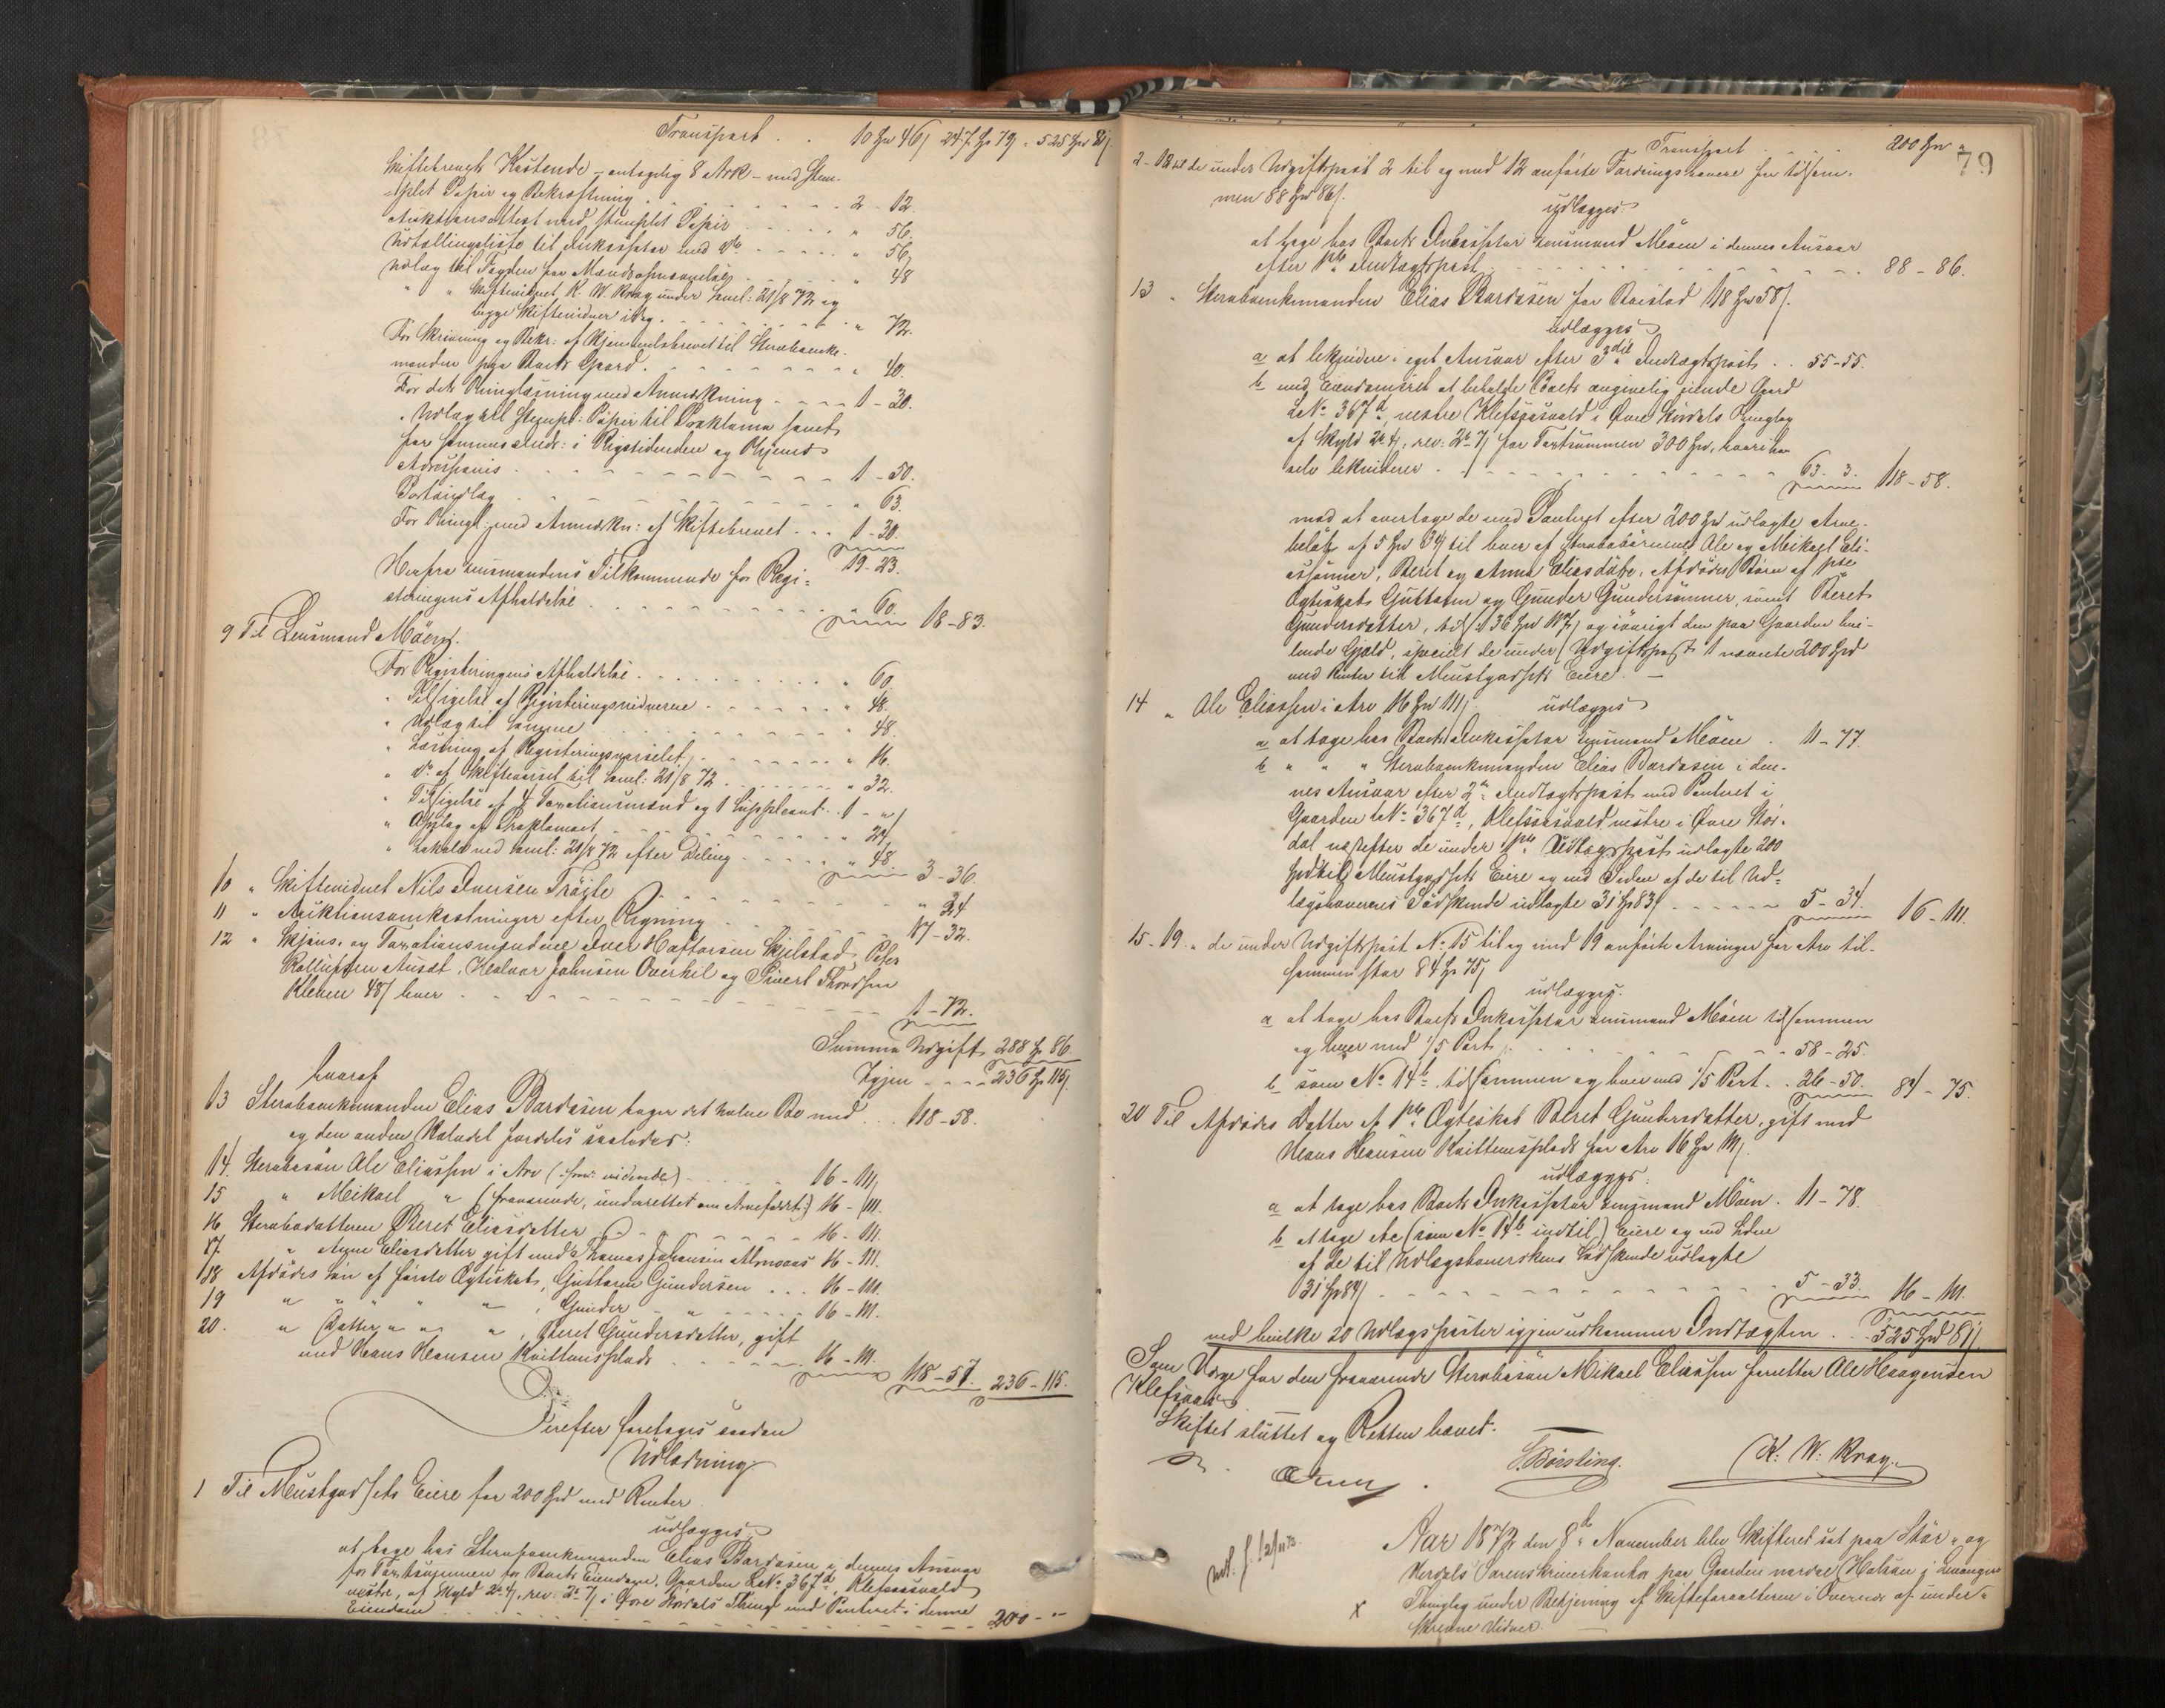 Transport . . 10 Spd 46 247 Sp 79 525 Spd 81
Skiftebrevets Kostende – antagelig 8 Ark – med stem-
plet Papir og Bekræftning . . . 2 - 12.
Auktionsattest med stemplet Papir . . . " 56.
Udtællingsliste til Inkassator med do . . . " 56.
Udlæg til Fogden for . . . " 48
" " Skiftevidnet K. W. Krog under Saml: 21/8 72 og
begge Skiftevidner idag . . . " 72.
For Skrivning og Bekr: af Hjemmelsbrevet til Stervboenke-
manden paa Boets Gaard . . . " 40.
For dets Thinglæsning med Anmærkning . . . 1 - 20.
" Udlæg til stempl: Papir til Proklama samt
for sammes Indr: i Rigstidenden og Thjems
Adresseavis . . . 1 - 50.
Portoudlæg . . . " 63.
For Thingl: med Anmærkn: af Skiftebrevet . . . 1 - 30.
19 - 23.
Herfra Lensmandens Tilkommende for Regi-
streringens Afholdelse . . . " 60. 18 - 83.
9 Til Lensmand Möen.
For Registreringens Afholdelse . . . " 60.
" Tilsigelse af Registreringsvidnerne . . . " 48.
" Udlæg til samme . . . " 48.
" Læsning af Registreringsvarselet . . . " 16.
" do af Skiftevarsel til Saml: 21/8 72 . . . " 32.
" Tilsigelse af 4 Taxationsmænd og 1 Suppleant . . 1 - "
" Opslag af Proklamaet . . . " 24
" Lokale ved Saml: 21/8 72 efter Deling . . . " 48. 3 - 36.
10 " Skiftevidnet Nils Iversen Tröite . . . " 24
11 " Auktionsomkostninger efter Regning . . . 17 - 32.
12 " Skjöns- og Taxationsmændene Iver Haftorsen Skjelstad, Peter
Rollufsen Ausæt, Halvor Johnsen Overkil og Sivert Thordsen
Kleven 48 hver . . . 1 - 72.
Summa Udgift 288 Sp 86.
Igjen . . . 236 Sp 115
hvoraf
13 Stervboenkemanden Elias Bardosen tager det halve Bo med . . 118 - 58.
og den anden Halvdel fordeles saaledes:
14. Stervbosön Ole Eliassen i Arv . . . 16 - 111
15 " Meikael " (fraværende, underrettet om Arvefaldet:) 16 - 111.
16 Stervbodatteren Beret Eliasdatter . . . 16 - 111.
17. " Anne Eliasdatter gift med Thomas Johansen Almoaas 16 - 111.
18 Afdödes Sön af förste Ægteskab, Guttorm Gundersen . . . 16 - 111.
19 " " " " " , Gunder " . . . 16 - 111.
20. " Datter " " " , Beret Gundersdatter, gift
med Hans Hansen Kvittemsplads . . . 16 - 111.
118 - 57. 236 - 115.
Derefter foretoges saadan
Udlodning
1 Til Meustgodsets Eiere for 200 Spd med Renter
udlægges
at tage hos Stervboenkemanden Elias Bardosen i dennes Ansvar
for Taxtsummen for Boets Eiendom, Gaarden L No 367d, Klefsaasvald
vestre, af Skyld 2 4, rev: 2 7 i Övre Stördals Thingl med Panteret i denne
Eiendom . . . 200 - "
79
Transport . . . 200 Spd "
2-12 til de under Udgiftspost 2 til og med 12 anförte Fordringshavere for tilsam-
men 88 Spd 86.
udlægges
at tage hos Boets Inkassator Lensmand Möen i dennes Ansvar
efter 1ste Indtægtspost . . . 88 - 86.
13 " Stervboenkemanden Elias Bardosen for Boeslod 118 Spd 58.
udlægges
a at likvidere i eget Ansvar efter 3die Indtægtspost . . 55 - 55.
b med Eiendomsret at beholde Boets angivelig eiende Gaard
L No 367d, vestre Klefsaasvald i Övre Stördals Thinglag
af Skyld 2 4, rev: 2 7 for Taxtsummen 300 Spd, hvori han
selv likviderer . . . 63 - 3. 118 - 58.
mod at overtage de med Panteret efter 200 Spd udlagte Arve-
belöb af 5 Spd 34 til hver af Stervbobörnene Ole og Meikael Eli-
assönner, Beret og Anna Eliasdötre, Afdödes Börn af 1ste
Ægteskab Guttorm og Gunder Gundersönner, samt Beret
Gundersdatter, tils 36 Spd 117 og iövrigt den paa Gaarden hvi-
lende Gjæld, specielt de under Udgiftspost 1 nævnte 200 Spd
med Renter til Meustgodsets Eiere. –
14 " Ole Eliassen i Arv 16 Spd 111 udlægges
a at tage hos Boets Inkassator Lensmand Möen . 11 - 77.
b " " " Stervboenkemanden Elias Bardosen i den-
nes Ansvar efter 2den Indtægtspost med Panteret i
Gaarden L No 367d, Klefsaasvald vestre i Övre Stör-
dal næstefter de under 1ste Udlægspost udlagte 200
Spd til Meustgodsets Eiere og ved Siden af de til Ud-
lægshaverens Södskende udlagte 31 Sp 83 . . . 5 - 34. 16 - 111.
15-19 " de under Udgiftspost No 15 til og med 19 anförte Arvinger for Arv til-
sammen stor 84 Sp 75
udlægges.
a at tage hos Boets Inkassator Lensmand Möen tilsammen
og hver med 1/5 Part . . . 58 - 25.
b som No 14 b tilsammen og hver med 1/5 Part . . 26 - 50. 84 - 75.
20 Til Afdödes Datter af 1ste Ægteskab Beret Gundersdatter, gift med
Hans Hansen Kvittemsplads for Arv 16 Sp 111.
udlægges.
a at tage hos Boets Inkassator Lensmand Möen . 11 - 78.
b at tage etc (som No 14 b indtil) Eiere og ved Siden
af de til Udlægshaverskens Södskende udlagte
31 Sp 84 . . . 5 - 33. 16 - 111.
ved hvilke 20 Udlægsposter igjen udkommer Indtægten . . 525 Spd 81.
Som Værge for den fraværende Stervbosön Mikael Eliassen forretter Ole Haagensen
Klefsaas
Skiftet sluttet og Retten hævet.
T. Börsting. K. W. Krog.
Aar 1872 den 8de November blev Skifteret sat paa Stör- og
Værdals Sorenskriverkontor paa Gaarden nordre Halsan i Levanger
x Thinglag under Betjening af Skifteforvalteren i Overvær af under-
skrevne Vidner. –